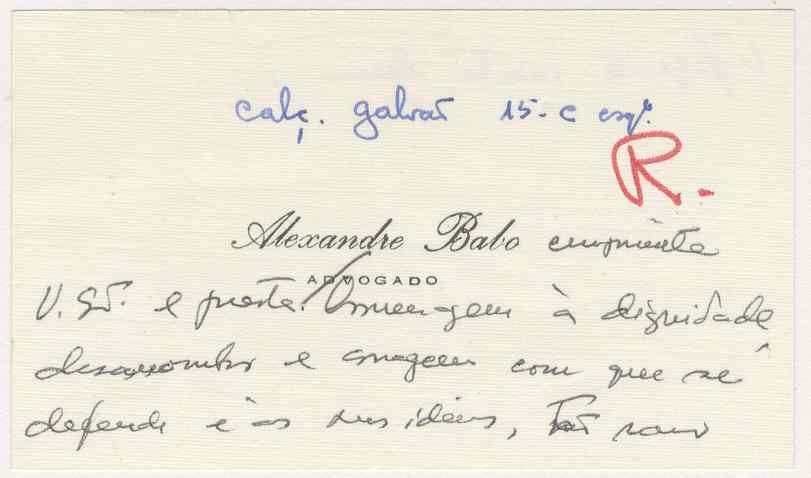 calç. galvão 15-c esqº.
R.
Alexandre Babo cumprimenta
ADVOGADO
V. Exª. e presta homenagem à dignidade
desassombro e coragem com que se
defende e às suas ideias, tão raro